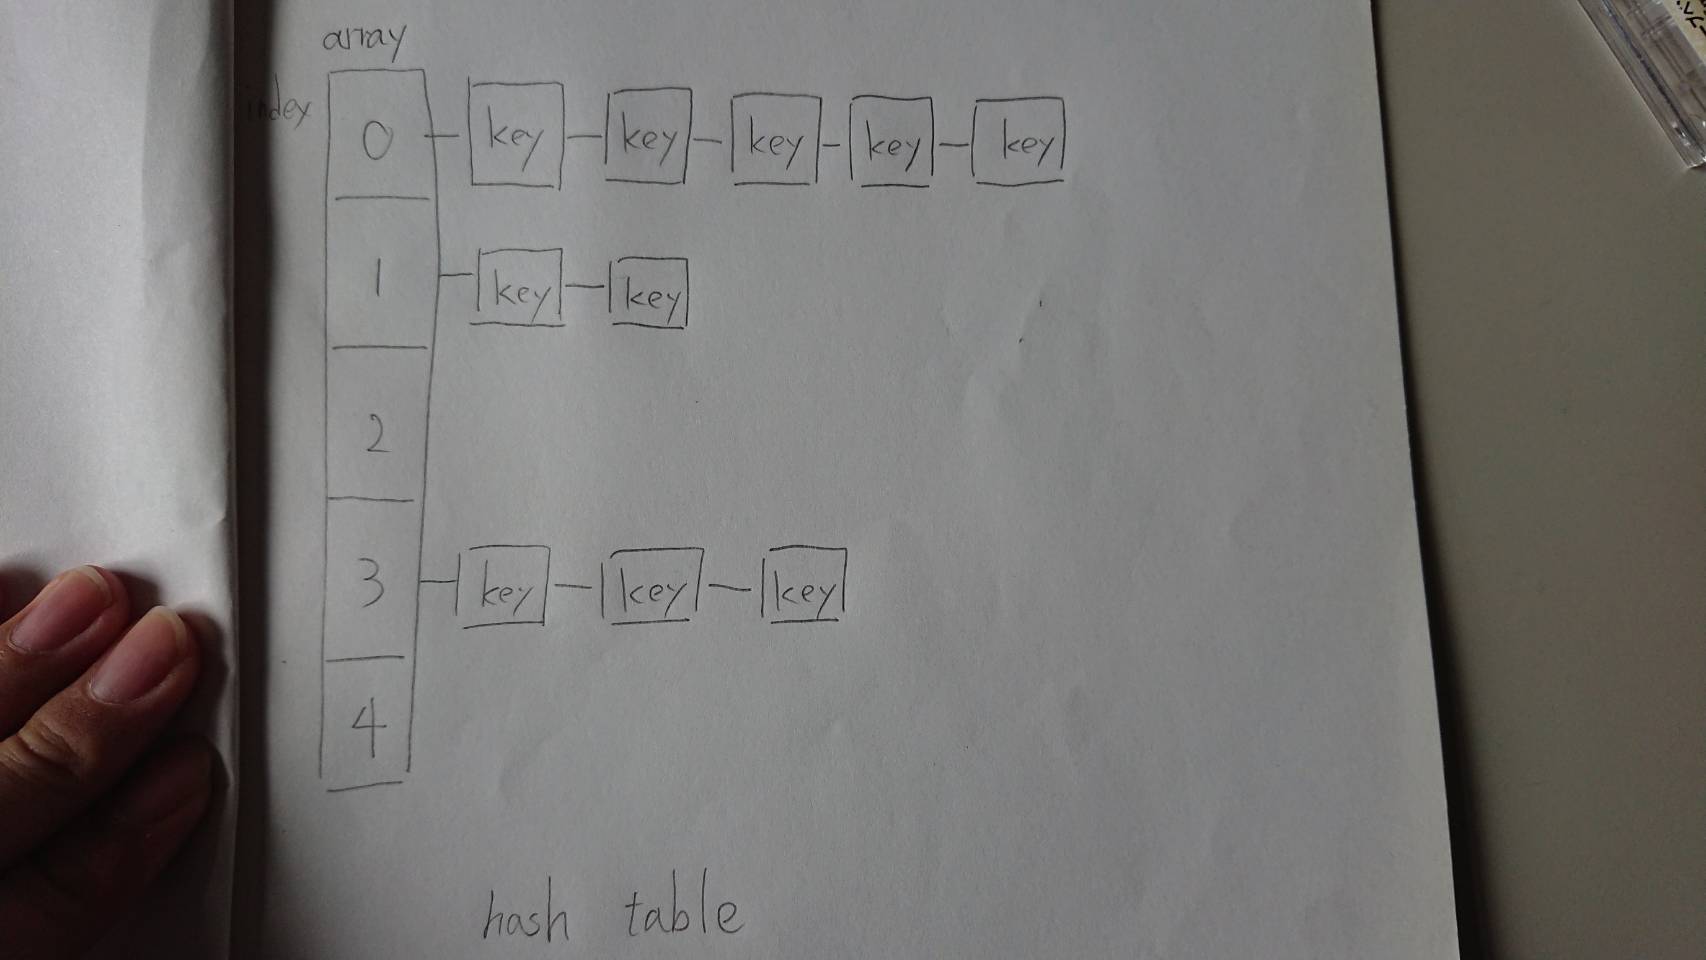 array
index
0 key key key key key
1 key key
2
3 key key key
4
hash table